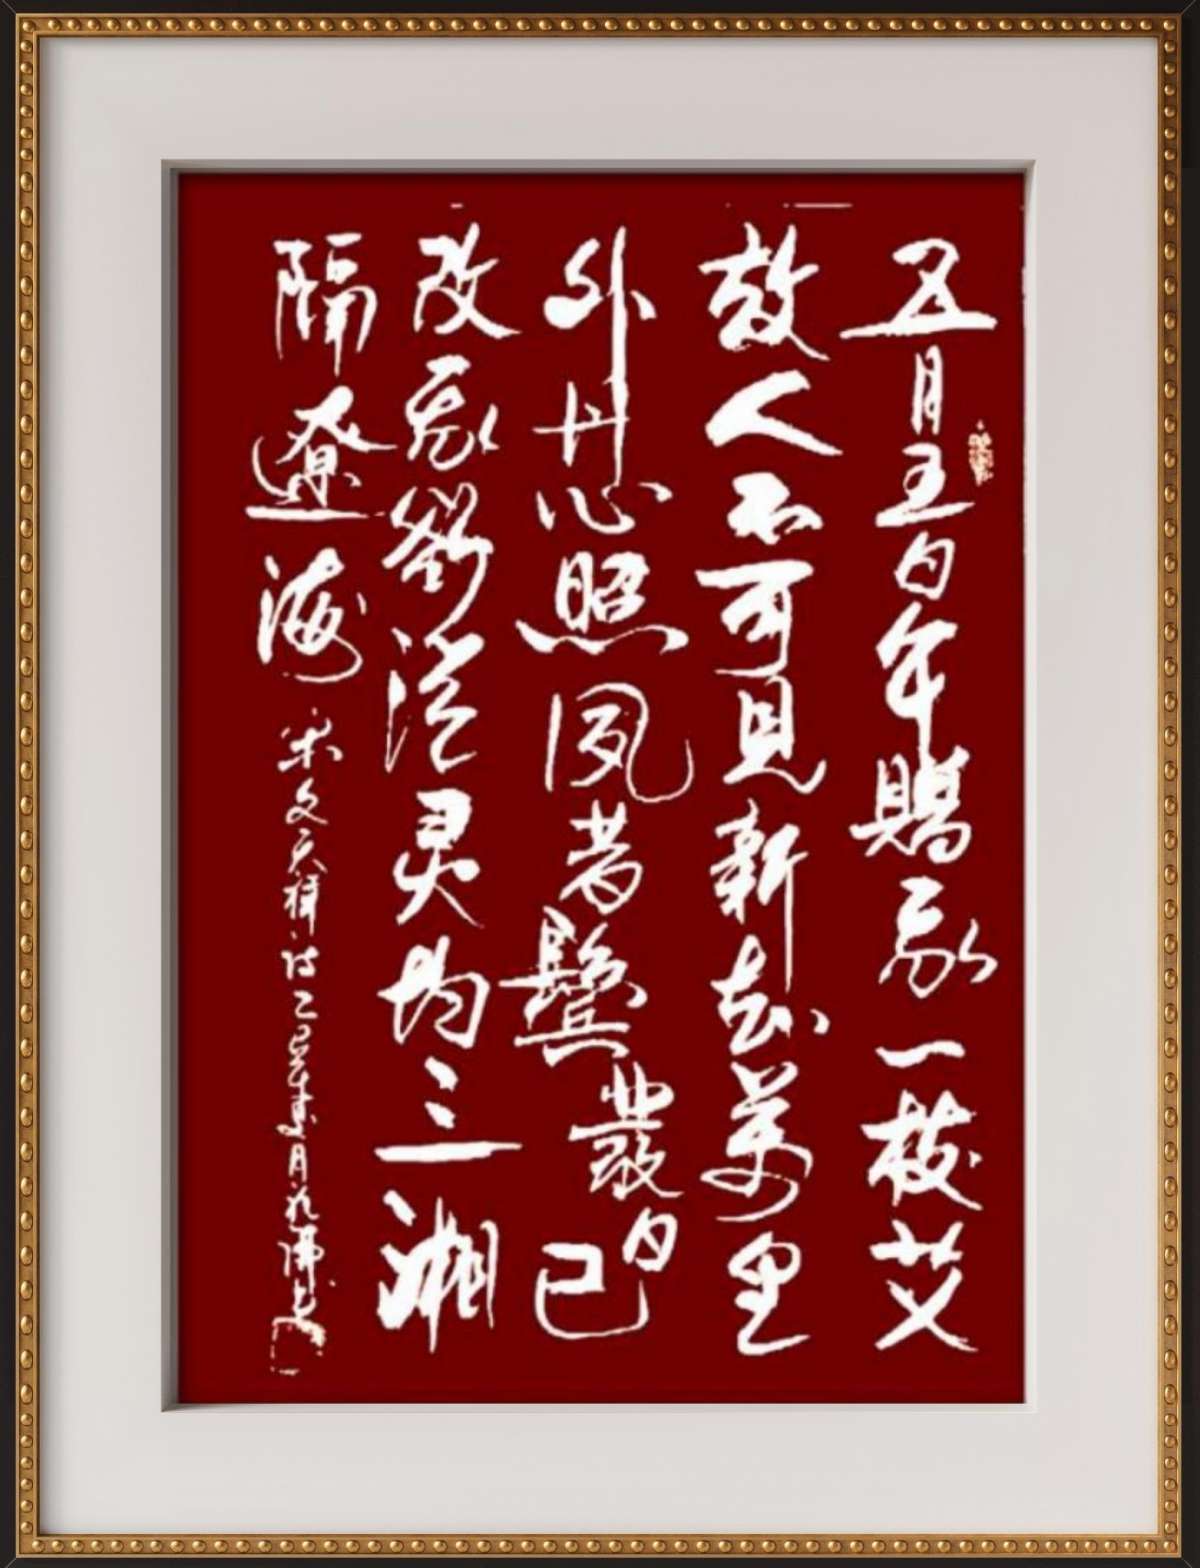 五月五日午賜我一枝艾
故人不可見新知萬里
外丹心照夙昔鬓發日已
改我欲從灵均三湘
隔遼海 宋文天祥诗乙巳年月書